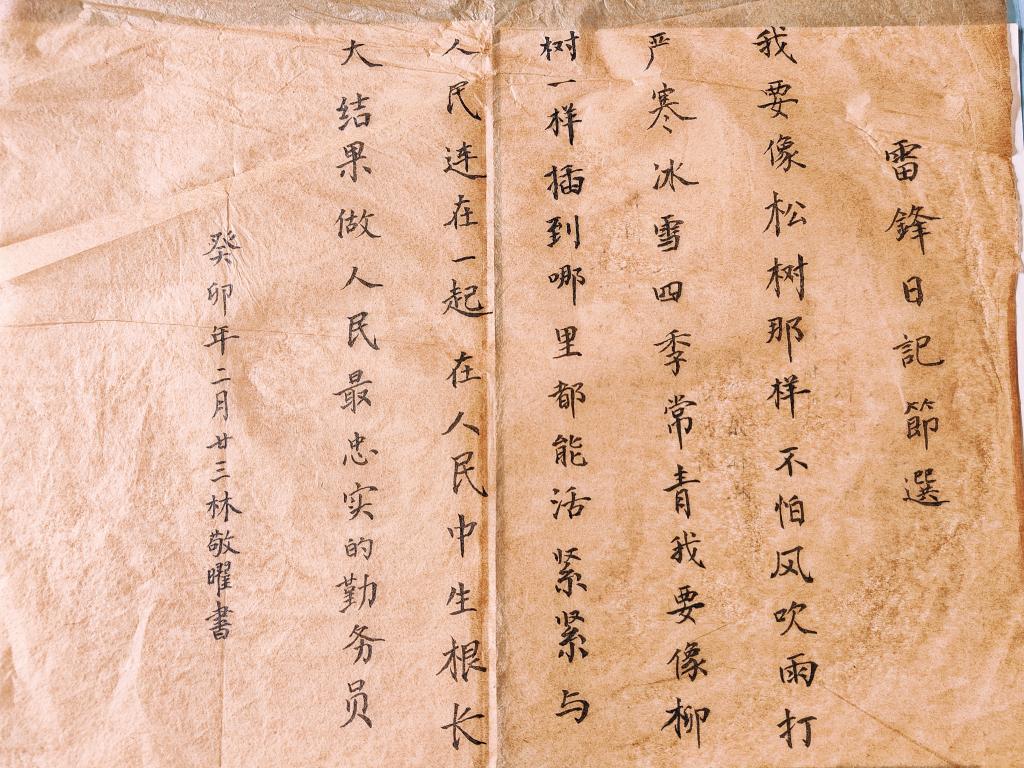 雷鋒日記節選
我要像松树那样不怕风吹雨打
严寒冰雪四季常青我要像柳
树一样插到哪里都能活紧紧与
人民连在一起在人民中生根长
大结果做人民最忠实的勤务员
癸卯年二月廿三林敬曜書